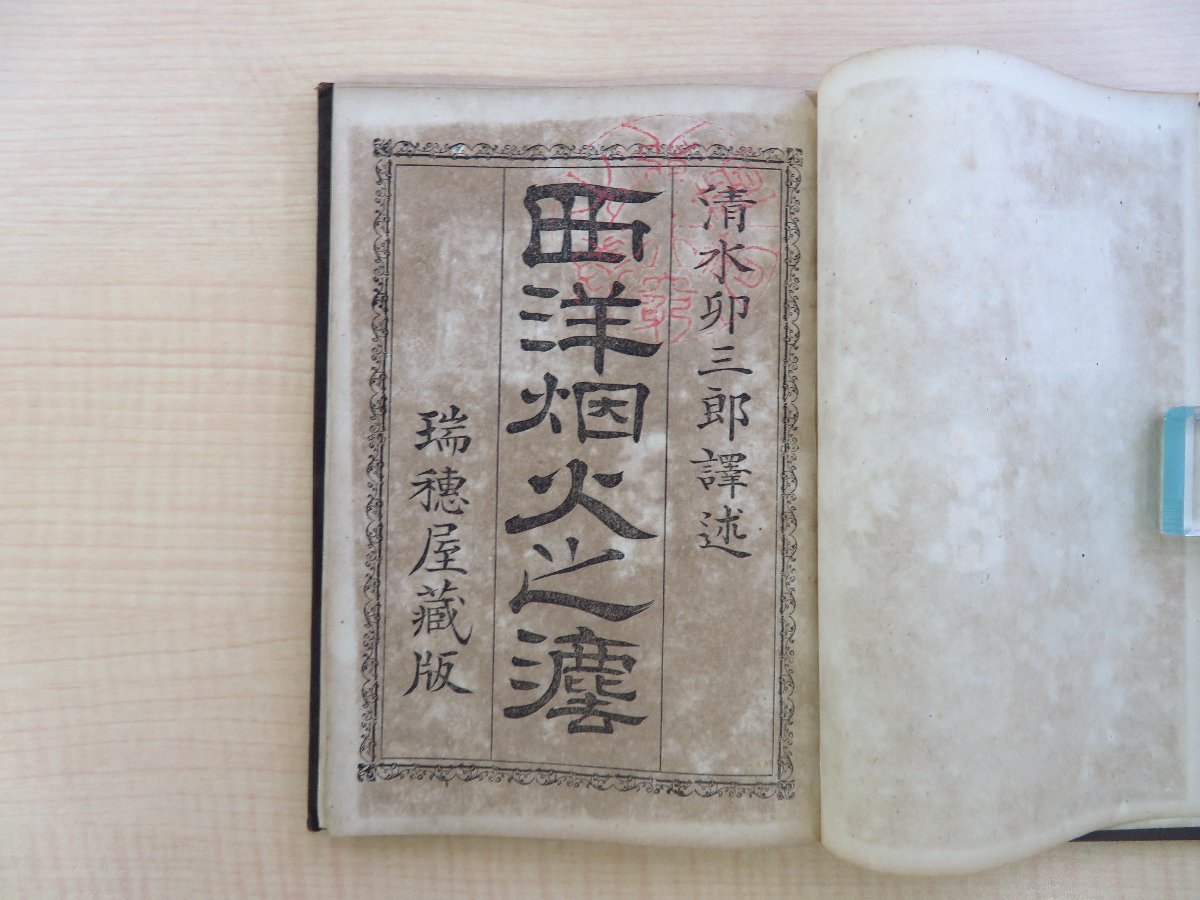 清水卯三郎譯述
西洋烟火之灋
瑞穗屋藏版